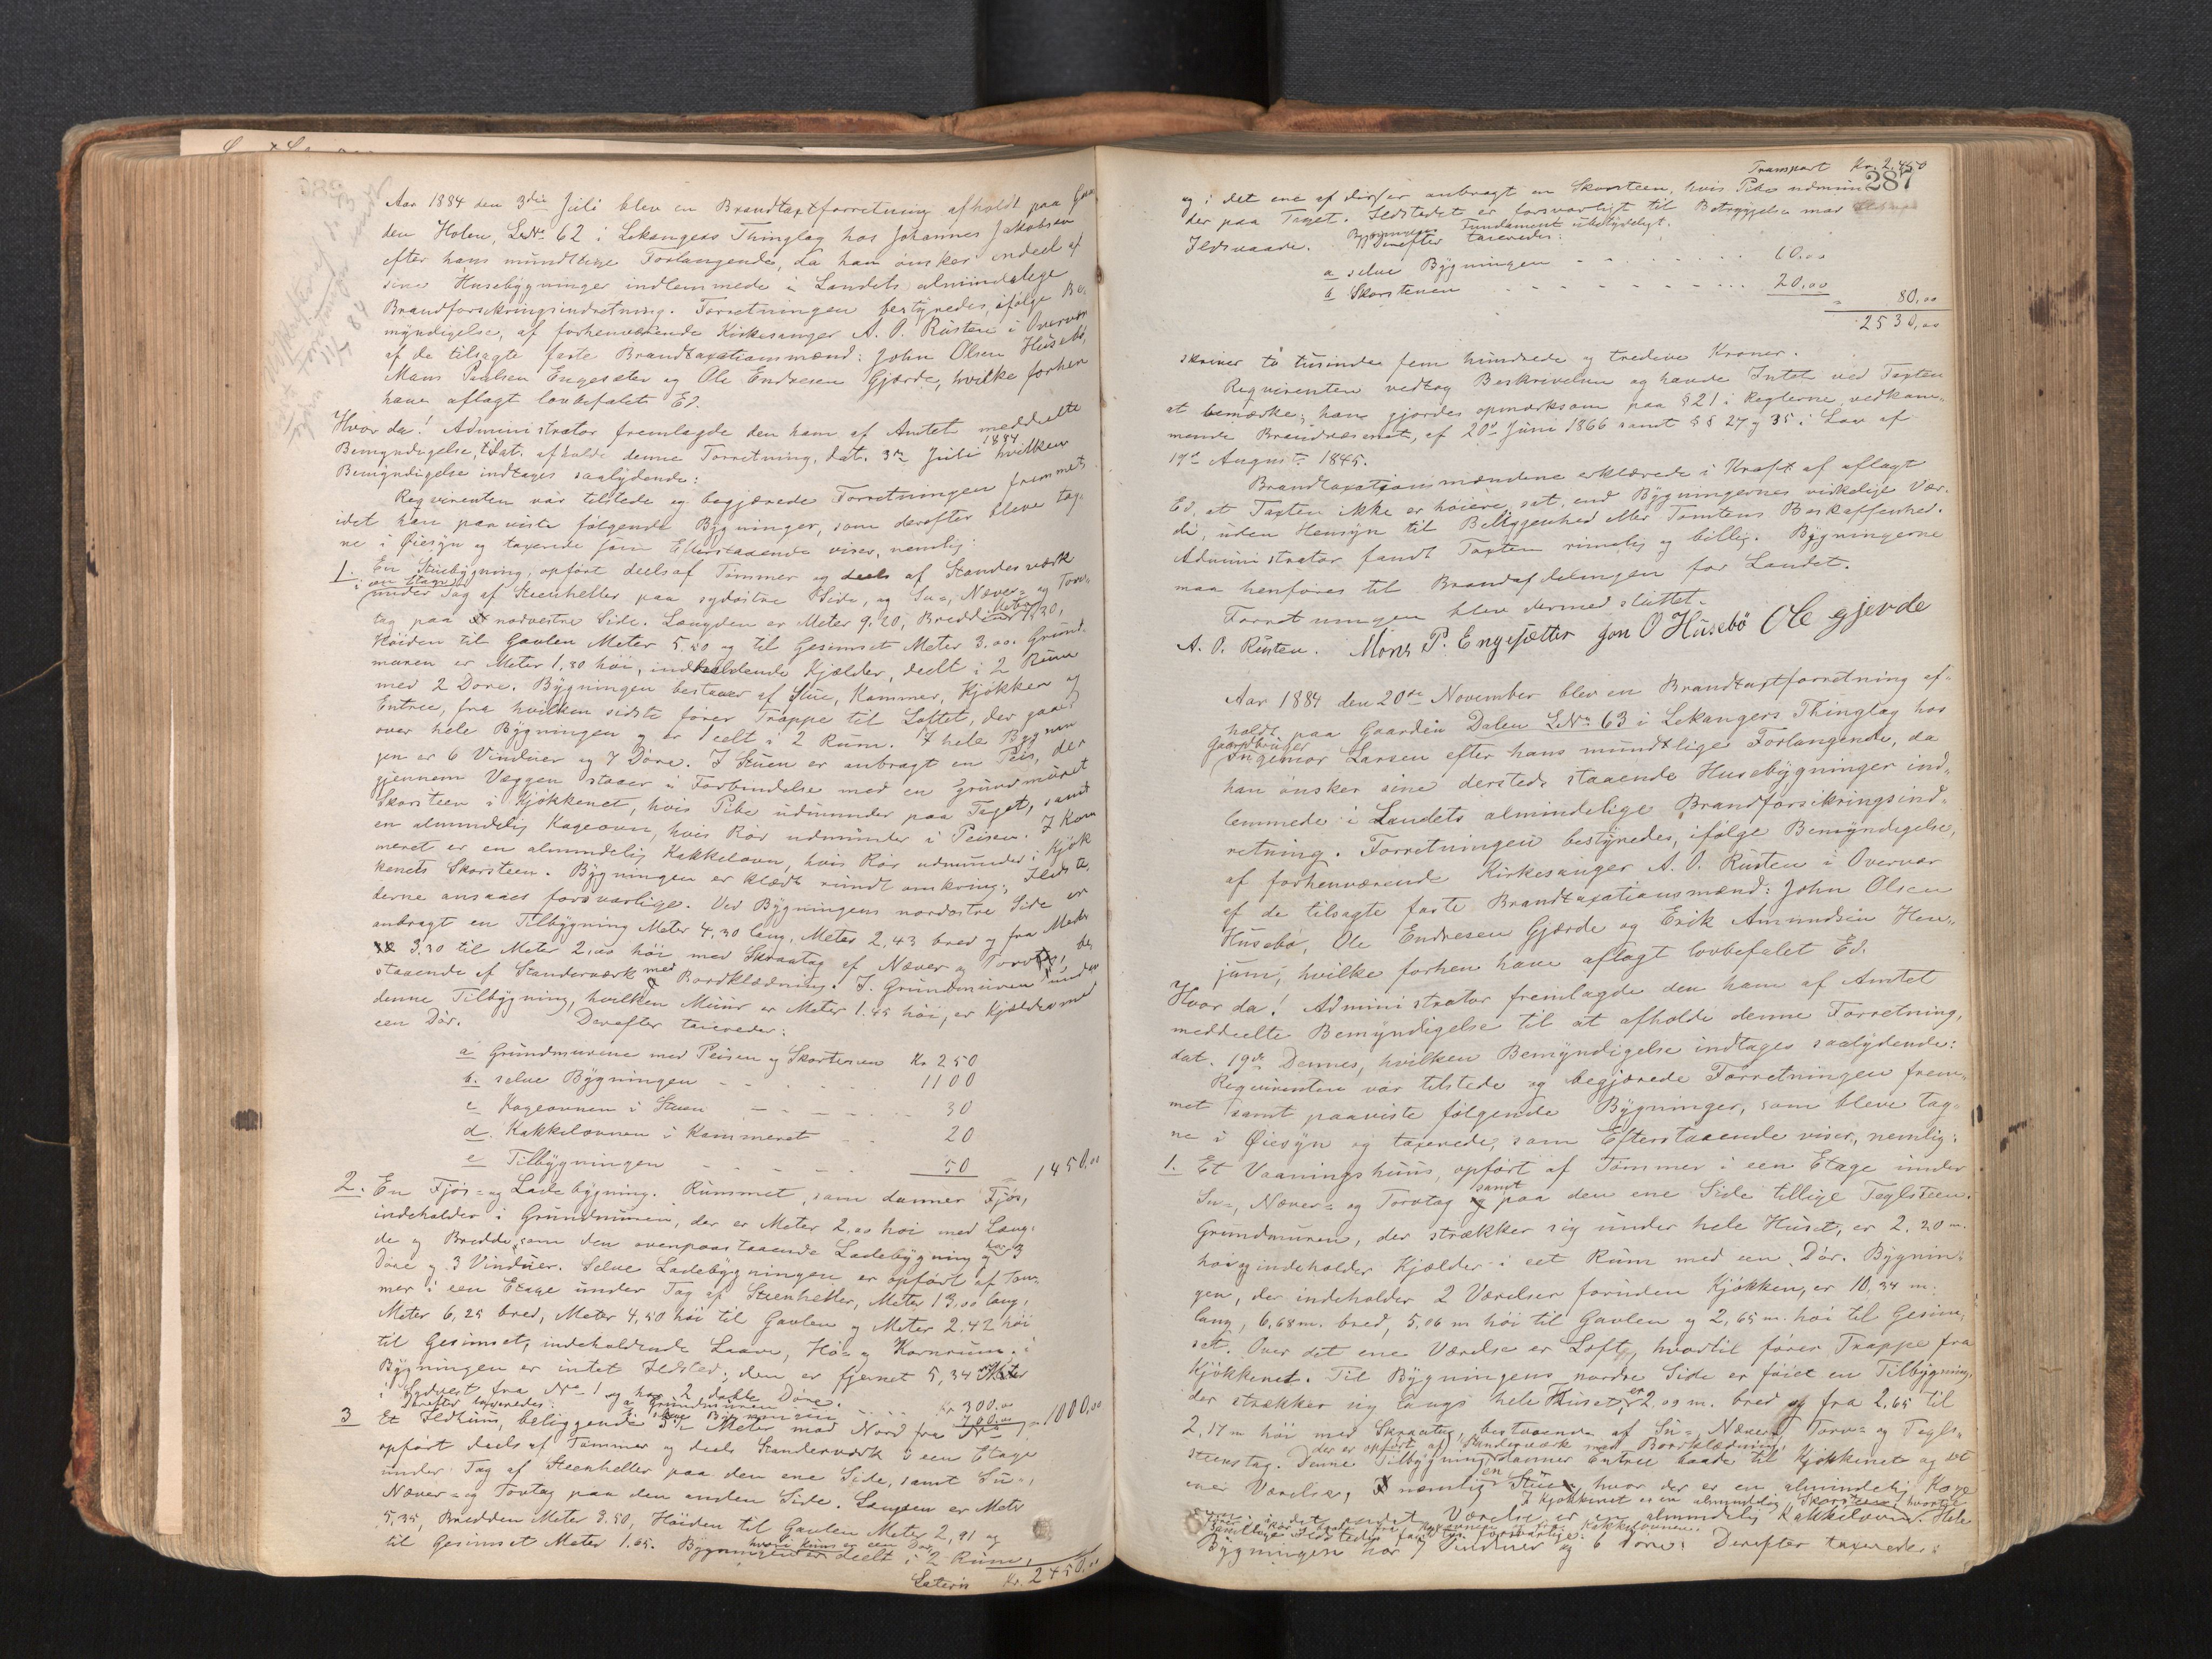 Aar 1884 den 3die Juli blev en Brandtaxtforretning afholdt paa Gaar
den Holen, LNr. 62 i Lekangers Thinglag hos Johannes Jakobsen
efter hans mundtlige Forlangende, da han ønsker endeel af
sine Husebygninger indlemmede i Landets almindelige
Brandforsikringsindretning. Forretningen bestyredes, ifølge Be-
myndigelse, af forhenværende Kirkesanger A. O. Rusten i Overvær
af de tilsagte faste Brandtaxationsmænd: John Olsen Husebø,
Mons Paulsen Engesæter og Ole Endresen Gjærde, hvilke forhen
have aflagt lovbefalet Ed.
Hvor da! Administrator fremlagde den ham af Amtet meddeelte
Bemyndigelse, til at afholde denne Forretning, dat. 3die Juli 1884 hvilken
Bemyndigelse indtages saalydende:
Reqvirenten var tilstede og begjærede Forretningen fremmet
idet han paaviste følgende Bygninger, som derefter bleve tag-
ne i Øiesyn og taxerede som Efterstaaende viser, nemlig:
1. En Stuebygning, opført deels af Tømmer og deels af Standerværk
i en Etage under Tag af Steenheller paa sydøstre Side, og Su-, Næver- og Torv-
tag paa nordvestre Side. Længden er Meter 9.20, Bredden Meter 7.30,
Høiden til Gavlen Meter 5.50 og til Gesimset Meter 3.00. Grund-
muren er Meter 1,80 høi, indholdende Kjælder, deelt i 2 Rum
med 2 Døre. Bygningen bestaaer af Stue, Kammer, Kjøkken og
Entree, fra hvilken sidste fører Trappe til Loftet, der gaaer
over hele Bygningen og er deelt i 2 Rum. I hele Bygnin
gen er 6 Vinduer og 7 Døre. I Stuen er anbragt en Peis, der
gjennem Væggen staaer i Forbindelse med en grundmuret
Skorsteen i Kjøkkenet, hvis Pibe udmunder paa Taget, samt
en almindelig Kageovn, hvis Rør udmunder i Peisen. I Kam
meret er en almindelig Kakkelovn, hvis Rør udmunder i Kjøk
kenets Skorsteen. Bygningen er klædt rundt omkring; Ildste
derne ansaaes forsvarlige. Ved Bygningens nordostre Side er
anbragt en Tilbygning Meter 4,30 lang, Meter 2,43 bred og fra Meter
3.30 til Meter 2,00 høi med Skraatag af Næver og Torv, be
staaende af Standerværk med Bordklædning. I Grundmuren under
denne Tilbygning, hvilken Muur er Meter 1.45 høi, er Kjælder med
een Dør. Derefter taxeredes:
a Grundmurene med Peisen og Skorstenen Kr 250
b. selve Bygningen 1100
c Kageovnen i Stuen 30
d. Kakkelovnen i Kammeret 20
e Tilbygningen 50 1450.00
2. En Fjøs- og Ladebygning. Rummet, som danner Fjøs,
indeholder i Grundmuren, der er Meter 2,00 høi med Læng-
de og Bredde som den ovenpaastaaende Ladebygning og har 3
Døre og 3 Vinduer. Selve Ladebygningen er opført af Tøm-
mer i een Etage under Tag af Steenheller, Meter 13,00 lang,
Meter 6,25 bred, Meter 4,50 høi til Gavlen og Meter 2.42 høi
til Gesimset, indeholdende Laave, Hø- og Kornrum. I
Bygningen er intet Ildsted; den er fjernet 5,34 Meter
i Sydvest fra No 1 og har 2 dobble Døre.
Derefter taxeredes: a Grundmuren Kr 300.00
b selve Bygningen 700.00 1000.00
3 Et Ildhuus, beliggende Meter mod Nord fra No 1,
opført deels af Tømmer og deels Standerværk i een Etage
under Tag af Steenheller paa den ene Side, samt Su-,
Næver- og Torvtag paa den anden Side. Længden er Meter
5,35, Bredden Meter 3.50, Høiden til Gavlen Meter 2,91 og
til Gesimset Meter 1.65. Bygningen er deelt i 2 Rum,
Lateris Kr. 2450.00
Transport Kr. 2,450
287
og i det ene af disse er anbragt en Skorsteen, hvis Pibe udmun
der paa Taget. Ildstedet er forsvarligt til Betryggelse mod
Ildsvaade. Bygningens Fundament ubetydeligt.
Derefter taxeredes:
a selve Bygningen 60.00
b Skorstenen 20.00 80,00
2530,00
skriver to tusinde fem hundrede og tredeve Kroner.
Reqvirenten vedtog Beskrivelsen og havde Intet ved Taxten
at bemærke; han gjordes opmærksom paa § 21 i Reglerne vedkom-
mende Brandvæsenet, af 20de Juni 1866 samt §§ 27 og 35 i Lov af
19de August 1845.
Brandtaxationsmændene erklærede i Kraft af aflagt
Ed, at Taxten ikke er høiere sat, end Bygningernes virkelige Vær-
di, uden Hensyn til Beliggenhed eller Tomtens Beskaffenhed.
Administrator fandt Taxten rimelig og billig. Bygningerne
maa henføres til Brandafdelingen for Landet.
Forretningen blev dermed sluttet.
A. O. Rusten. Mons P. Engesætter Jon O Husebö Ole gjerde
Aar 1884 den 20de November blev en Brandtaxtforretning af-
holdt paa Gaarden Dalen LNr. 63 i Lekangers Thinglag hos
Gaardbruger Ingemor Larsen efter hans mundtlige Forlangende, da
han ønsker sine dersteds staaende Husebygninger ind-
lemmede i Landets almindelige Brandforsikringsind-
retning. Forretningen bestyredes, ifølge Bemyndigelse,
af forhenværende Kirkesanger A. O. Rusten i Overvær
af de tilsagte faste Brandtaxationsmænd: John Olsen
Husebø, Ole Endresen Gjærde og Erik Amundsen Hen-
jum, hvilke forhen have aflagt lovbefalet Ed.
Hvor da! Administrator fremlagde den ham af Amtet
meddeelte Bemyndigelse til at afholde denne Forretning,
dat. 19de Dennes, hvilken Bemyndigelse indtages saalydende:
Reqvirenten var tilstede og begjærede Forretningen frem-
met samt paaviste følgende Bygninger, som bleve tag-
ne i Øiesyn og taxerede, som Efterstaaende viser, nemlig:
1. Et Vaaningshuus, opført af Tømmer i een Etage under
Su-, Næver- og Torvtag samt paa den ene Side tillige Taglsteen.
Grundmuren, der strækker sig under hele Huset, er 2.20 m.
høi og indeholder Kjælder i eet Rum med een Dør. Bygnin-
gen, der indeholder 2 Værelser foruden Kjøkken, er 10,34 m.
lang, 6,68 m. bred, 5,06 m høi til Gavlen og 2,65 m. høi til Gesim-
set. Over det ene Værelse er Loft, hvortil fører Trappe fra
Kjøkkenet. Til Bygningens nordre Side er føiet en Tilbygning,
der strækker sig langs hele Huset, er 2.09 m. bred og fra 2.65 til
2,17 m høi med Skraatag, bestaaende af Su-, Næver, Torv- og Tagl-
steens tag. Denne Tilbygning der er opført af Standerværk med Bordklædning, danner Entree baade til Kjøkkenet og det
ene Værelse, nemlig en Stue, hvor der er en almindelig Kage
I Kjøkkenet er en almindelig Skorsteen, hvortil
det andet Værelse er en almindelig Kakkelovn. Hele
Bygningen har 7 Vinduer og 6 Døre. Derefter taxeredes: